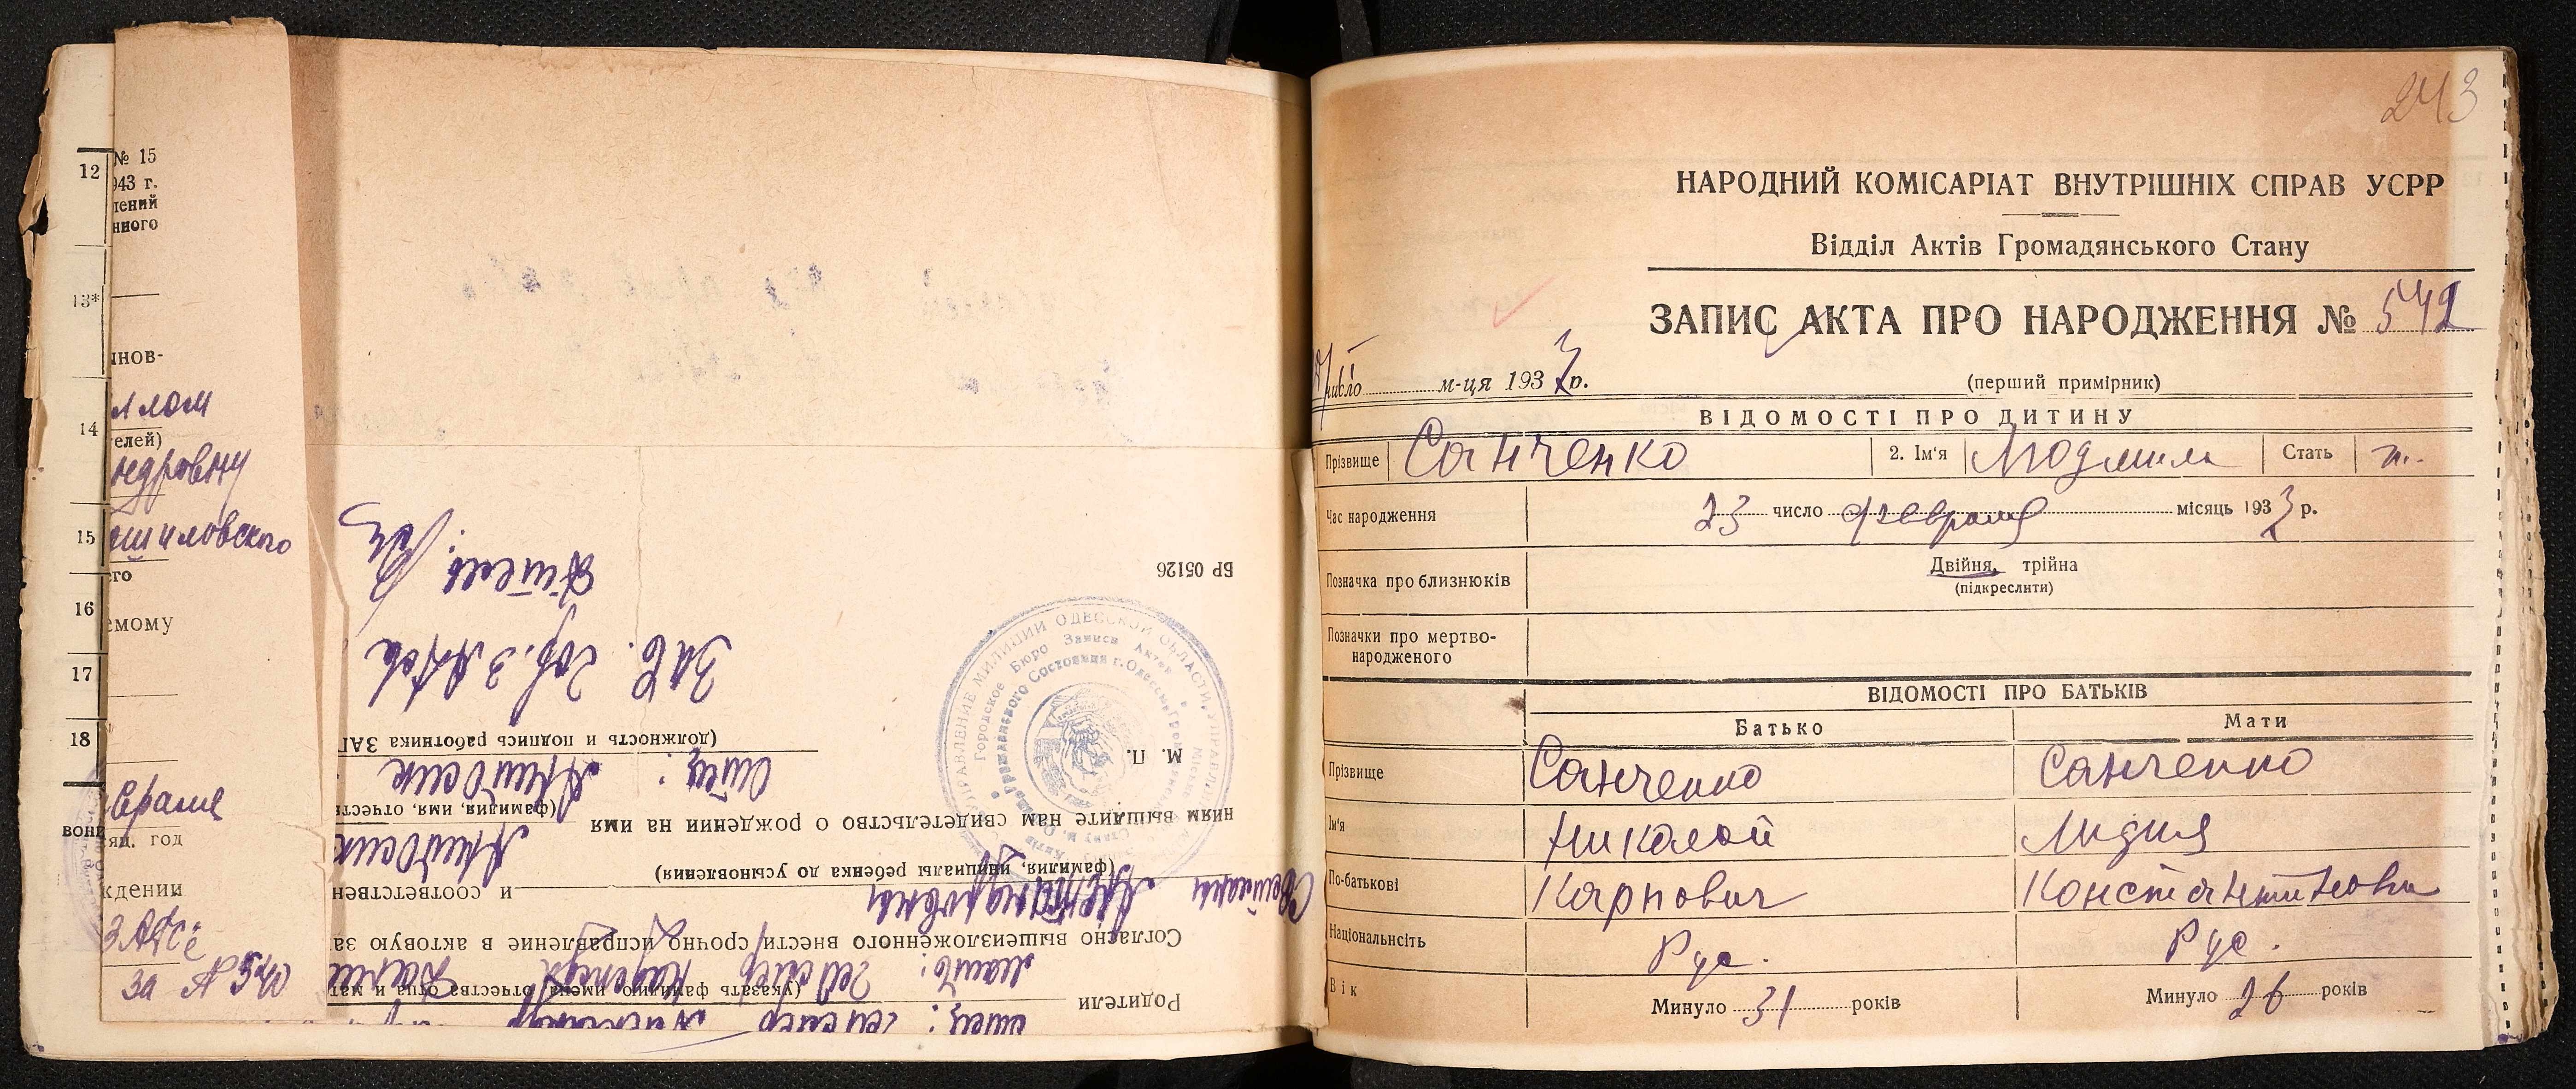 12
13*
14
15
16
17
18
вони
№ 15
943 г.
лений
нного
инов-
ллом
елей)
ндровну
ошиловского
его
емому
враля
яц. год
ждении
ЗАГСе
за № 540
Родители
(указать фамилию, имена, отчества отца и мат
Согласно вышеизложенного внести срочно исправление в актовую за
Александровна
(фамилия, инициалы ребенка до усыновления)
и соответствен
ниям вышдите нам свидетельство о рождении на имя
(фамилия, имя, отчеств
М. П.
(должность и подпись работника ЗАГ
Зав. Гор. ЗАГСа
БР 05126
УПРАВЛЕНИЕ МИЛИЦИИ ОДЕССКОЙ ОБЛАСТИ
Городское Бюро Записи Актов
Гражданского Состояния г. Одессы
243
НАРОДНИЙ КОМІСАРІАТ ВНУТРІШНІХ СПРАВ УСРР
Відділ Актів Громадянського Стану
ЗАПИС АКТА ПРО НАРОДЖЕННЯ № 542
число м-ця 1933 р.
(перший примірник)
ВІДОМОСТІ ПРО ДИТИНУ
Прізвище Санченко 2. Ім'я Людмила Стать ж.
Час народження 23 число февраля місяць 1933 р.
Позначка про близнюків Двійня, трійна
(підкреслити)
Позначки про мертво-
народженого
ВІДОМОСТІ ПРО БАТЬКІВ
Батько Мати
Прізвище Санченко Санченко
Ім'я Николай Лидия
По-батькові Карпович Константиновна
Національність Рус. Рус.
Вік Минуло 31 років Минуло 26 років